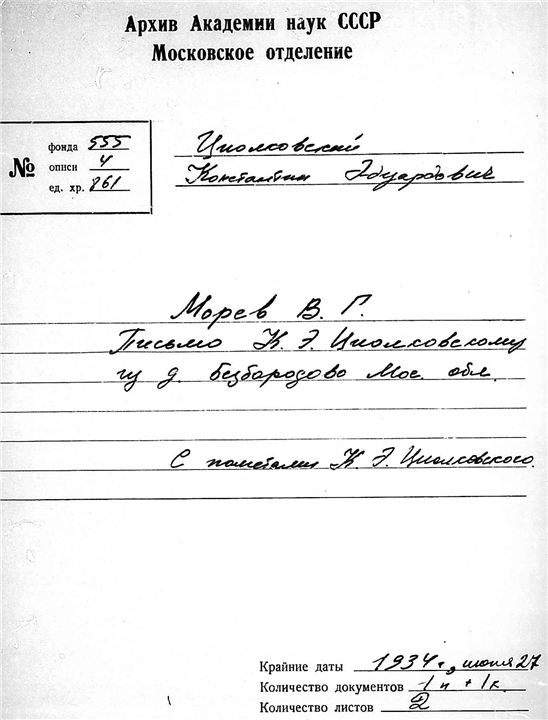 Архив Академии наук СССР
Московское отделение
№
фонда 555
описи 4
ед. хр. 861
Циолковский
Константин Эдуардович
Морев В. Г.
Письмо К. Э. Циолковскому
из д. Безбородово Мос. обл.
С пометами К. Э. Циолковского.
Крайние даты 1934 г., июня 27
Количество документов 1 п + 1 к.
Количество листов 2